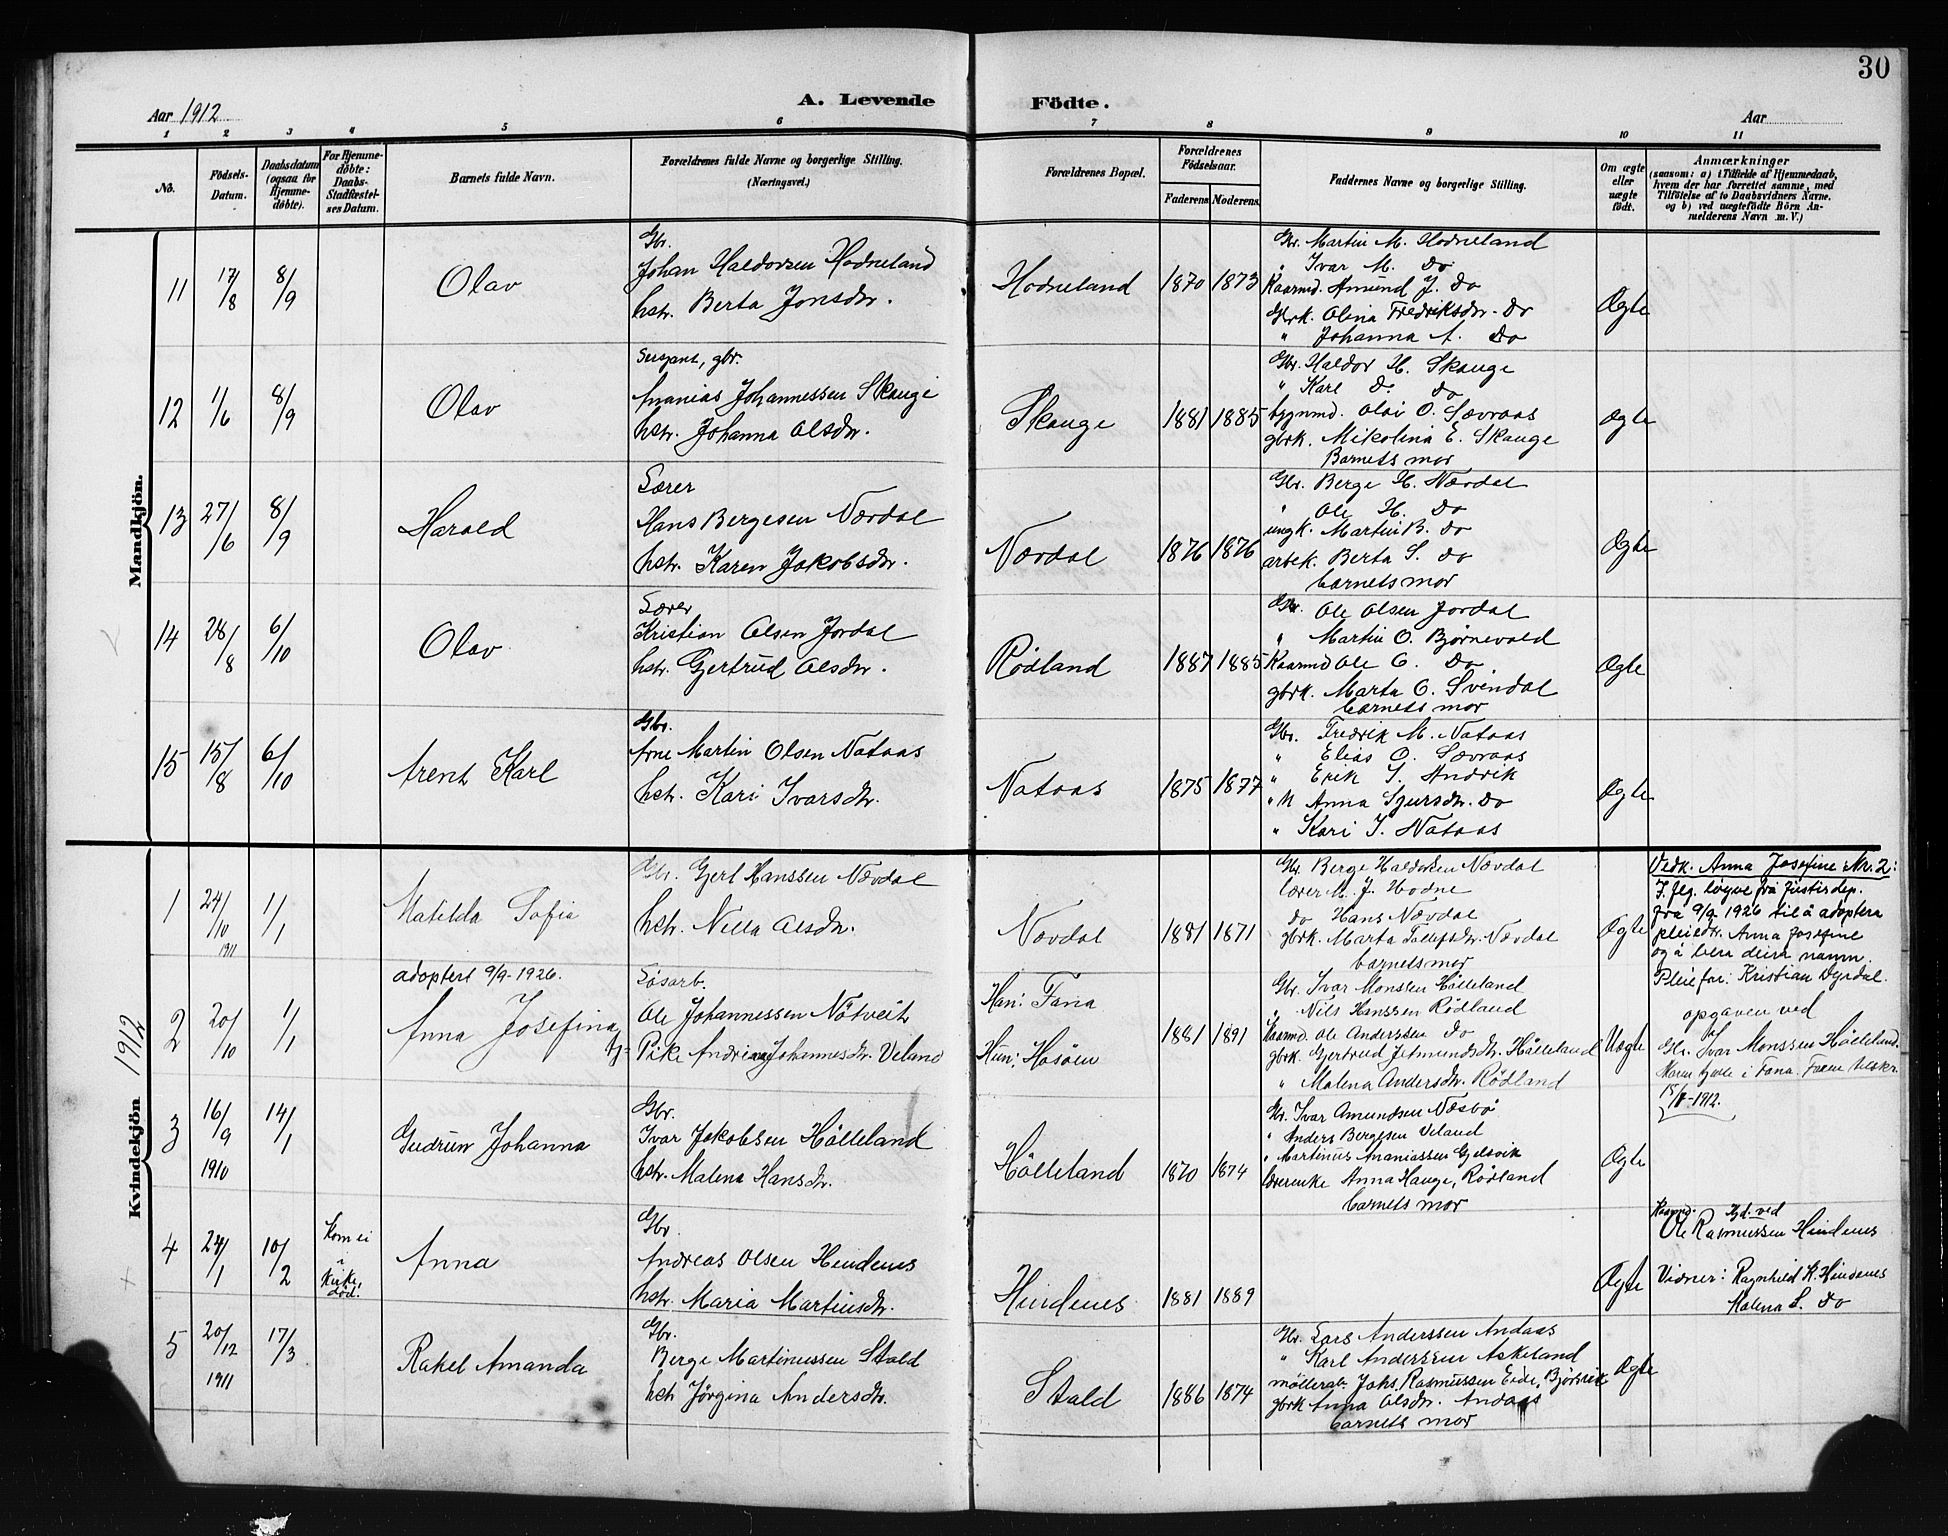 30
Aar 1912
A. Levende Födte.
Aar
1 2 3 4 5 6 7 8 9 10 11
No.
Födsels-Datum.
Daabsdatum (ogsaa for Hjemmedöbte).
For Hjemmedöbte: Daabs-Stadfæstelses Datum.
Barnets fulde Navn.
Forældrenes fulde Navne og borgerlige Stilling. (Næringsvei.)
Forældrenes Bopæl.
Forældrenes Födselsaar.
Faderens Moderens
Faddernes Navne og borgerlige Stilling.
Om ægte eller uægte födt.
Anmærkninger
(saasom: a) i Tilfælde af Hjemmedaab,
hvem der har forrettet samme, med
Tilföielse af to Daabsvidners Navne,
og b) ved uægtefödte Börn An-
melderens Navn m. V.)
Mandkjön.
11 17/8 8/9 Olav
Gbr.
Johan Haldorsen Hodneland
hstr. Berta Jonsdtr.
Hodneland 1870 1873
Gbr. Martin M. Hodneland
" Ivar M. Do
Kaarmd. Amund J. Do
Gbrk. Olina Fredriksdtr. Do
" Johanna A. Do
Ægte
12 1/6 8/9 Olav
Sersjant, gbr.
Ananias Johannessen Skauge
hstr. Johanna Olsdtr.
Skauge 1881 1885
Gbr. Haldor H. Skauge
" Karl D. Do
bygnmd. Olai O. Sævraas
gbrk. Mikolina E. Skauge
Barnets mor
Ægte
13 27/6 8/9 Harald
Lærer
Hans Bergesen Nævdal
hstr. Karen Jakobsdtr.
Nævdal 1876 1876
Gbr. Berge H. Nævdal
" Ole H. Do
ungk. Martin B. Do
arbek. Berta S. Do
barnets mor
Ægte
14 28/8 6/10 Olav
Lærer
Kristian Olsen Jordal
hstr. Gjertrud Olsdtr.
Rödland 1887 1885
Gbr. Ole Olsen Jordal
" Martin O. Bjørnevald
Kaarmd Ole O. Do
gbrk. Marta O. Svindal
barnets mor
Ægte
15 15/8 6/10 Arent Karl
Gbr.
Arne Martin Olsen Nataas
hstr. Kari Ivarsdtr.
Nataas 1875 1877
Gbr. Fredrik M. Nataas
" Elias O. Sævraas
" Erik S. Andvik
" Anna Sjursdtr. Do
" Kari I. Nataas
Ægte
Kvindekjön 1912
1 24/10 1911 1/1 Matilda Sofia
Gbr. Gjert Hanssen Nævdal
hstr. Nilla Olsdtr.
Nævdal 1881 1871
Gbr. Berge Haldorsen Nævdal
lærer M. J. Hodne
do Hans Nævdal
gbrk. Marta Tollefsdtr. Nævdal
barnets mor
Ægte
Vedk. Anna Josefine Nr. 2:
I flg. løyve frå Justisdep.
frå 9/9 1926 til å adoptera
pleiedtr. Anna Josefine
og å bera deira namn.
Pleiefar: Kristian Dyrdal.
adoptert 9/9-1926.
2 20/10 1/1 Anna Josefina
Løsarb.
Ole Johannessen Nötveit
Pike Andrina Johannesdtr. Veland
Han: Fana
Hun: Hosöen
1881 1891
Gbr. Ivar Monssen Hölleland
" Nils Hanssen Rödland
Kaarmd. Ole Anderssen Do
gbrk. Gjertrud Jetmundsdtr. Hölleland
" Malena Andersdtr. Rödland
Uægte
opgaven ved
Gbr. Ivar Monssen Hölleland.
1912.
3 16/9 1910 14/1 Gudrun Johanna
Gbr.
Ivar Jakobsen Hölleland
hstr. Malena Hansdtr.
Hölleland 1870 1874
Gbr. Ivar Amundsen Næsbö
" Anders Bergesen Veland
" Martinus Ananiassen Gjelsvik
lærerenke Anna Hauge, Rödland
barnets mor
Ægte
4 24/1 10/2 Kom ei i kirke, död. Anna
Gbr
Andreas Olsen Hindenes
hstr. Maria Martinsdtr.
Hindenes 1881 1889
Ægte
Hjd. ved
Kaarmd. Ole Rasmussen Hindenes
Vidner: Ragnhild K. Hindenes
Malena S. Do
5 20/12 1911 17/3 Rakel Amanda
Gbr.
Berge Martinussen Stald
hstr Jörgina Andersdtr.
Stald 1886 1874
Gbr. Lars Anderssen Andaas
" Karl Anderssen Askeland
möllerab. Johs. Rasmussen Eide, Bjørsvik
gbrk Anna Olsdtr. Andaas
barnets mor
Ægte